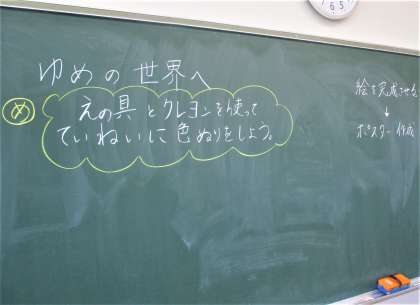 ゆめの世界へ
め
えの具とクレヨンを使って
ていねいに色ぬりをしよう。
絵を完成させる
↓
ポスター作成